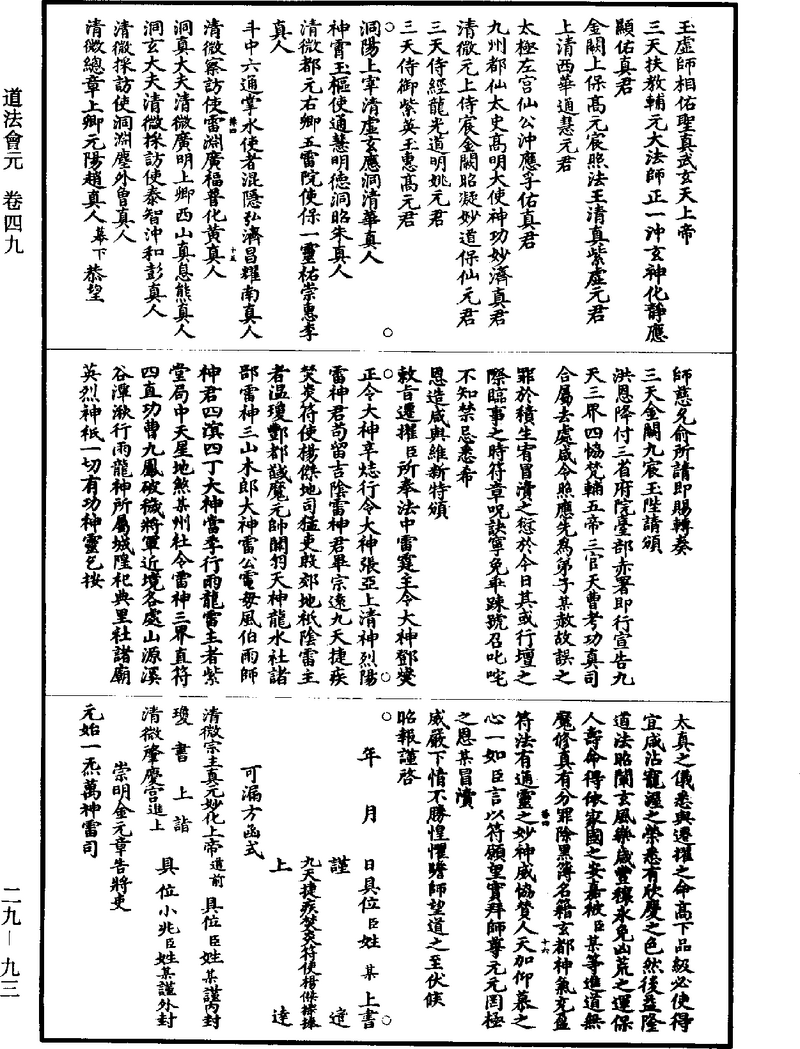 道法會元 卷四九
二九－九三
玉虛師相佑聖真武玄天上帝
三天扶教輔元大法師正一沖玄神化靜應
顯佑真君
金闕上保高元宸照法王清真紫虛元君
上清西華通慧元君
太極左宮仙公沖應孚佑真君
九州都仙太史高明大使神功妙濟真君
清微元上侍宸金闕昭凝妙道保仙元君
三天侍經龍光道明姚元君
三天侍御紫英玉惠高元君
洞陽上宰清虛玄應洞清華真人
神霄玉樞使通慧明德洞昭朱真人
清微都元右卿五雷院使保一靈祐崇惠李
真人
斗中六通掌水使者混隱弘濟昌耀南真人
清微察訪使雷淵廣福普化黃真人
洞真大夫清微廣明上卿西山真息熊真人
洞玄大夫清微採訪使泰智沖和彭真人
清微採訪使洞淵塵外曾真人
清微總章上卿元陽趙真人幕下恭望
師慈允俞所請即賜轉奏
三天金闕九宸玉陛請頒
洪恩降付三省府院臺部赤署即行宣告九
天三界四協梵輔五帝三官天曹考功真司
合屬去處咸令照應先為弟子某赦故誤之
罪於積生宥冒瀆之愆於今日其或行壇之
際臨事之時符章呪訣寧免乖踈號召叱咤
不知禁忌悉希
恩造咸與維新特頒
敕旨遷擢臣所奉法中雷霆主令大神鄧燮
正令大神辛𢗅行令大神張亞上清神烈陽
雷神君苟留吉陰雷神君畢宗遠九天捷疾
焚炎符使楊傑地司猛吏殷郊地祇陰雷主
者溫瓊酆都馘魔元帥關羽天神龍水社諸
部雷神三山木郎大神雷公電母風伯雨師
神君四溟四丁大神當季行雨龍雷主者紫
堂局中天星地煞某州社令雷神三界直符
四直功曹九鳳破穢將軍近境各處山源溪
谷潭湫行雨龍神所屬城隍祀典里社諸廟
英烈神祇一切有功神靈乞按
太真之儀悉與遷擢之命高下品級必使得
宜咸沾寵渥之榮悉有欣慶之色然後益隆
道法昭闡玄風樂歲豐穰永免凶荒之運保
人壽命得依家國之安嘉被臣某等進道無
魔修真有分罪除黑簿名籍玄都神氣充盈
符法有通靈之妙神威協贊人天加仰慕之
心一如臣言以符願望實拜師尊元元罔極
之恩某冒瀆
威嚴下情不勝惶懼瞻師望道之至伏俟
昭報謹啓
年 月 日具位臣姓 某 上書
謹 達
九天捷疾焚炎符使楊傑捧
上 達
可漏方函式
清微宗主真元妙化上帝道前 具位臣姓某謹內封
瓊 書 上 詣
清微肇慶宮進上 具位小兆臣姓某謹外封
崇明金元章告將吏
元始一炁萬神雷司